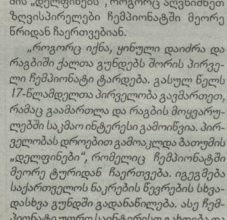 ზღვისპირელები ჩემპიონატში მეორე
წრიდან ჩაერთვებიან.
„როგორც იქნა, ყინული დაიძრა და
რაგბიში ქალთა გუნდებს შორის პირვე-
ლი ჩემპიონატი ტარდება. გასულ წელს
17-წლამდელთა პირველობა გავმართეთ,
რამაც გაამართლა და რაგბის მოყვარუ-
ლებში საკმაო ინტერესი გამოიწვია. პირ-
ველობას დროებით გამოაკლდა ბათუმის
„დელფინები“, რომელიც ჩემპიონატში
მეორე ტურიდან ჩაერთვება. იგეგმება
საქართველოს ნაკრების წევრების სხვა-
დასხვა გუნდში გადანაწილება. ასე ჩემ-